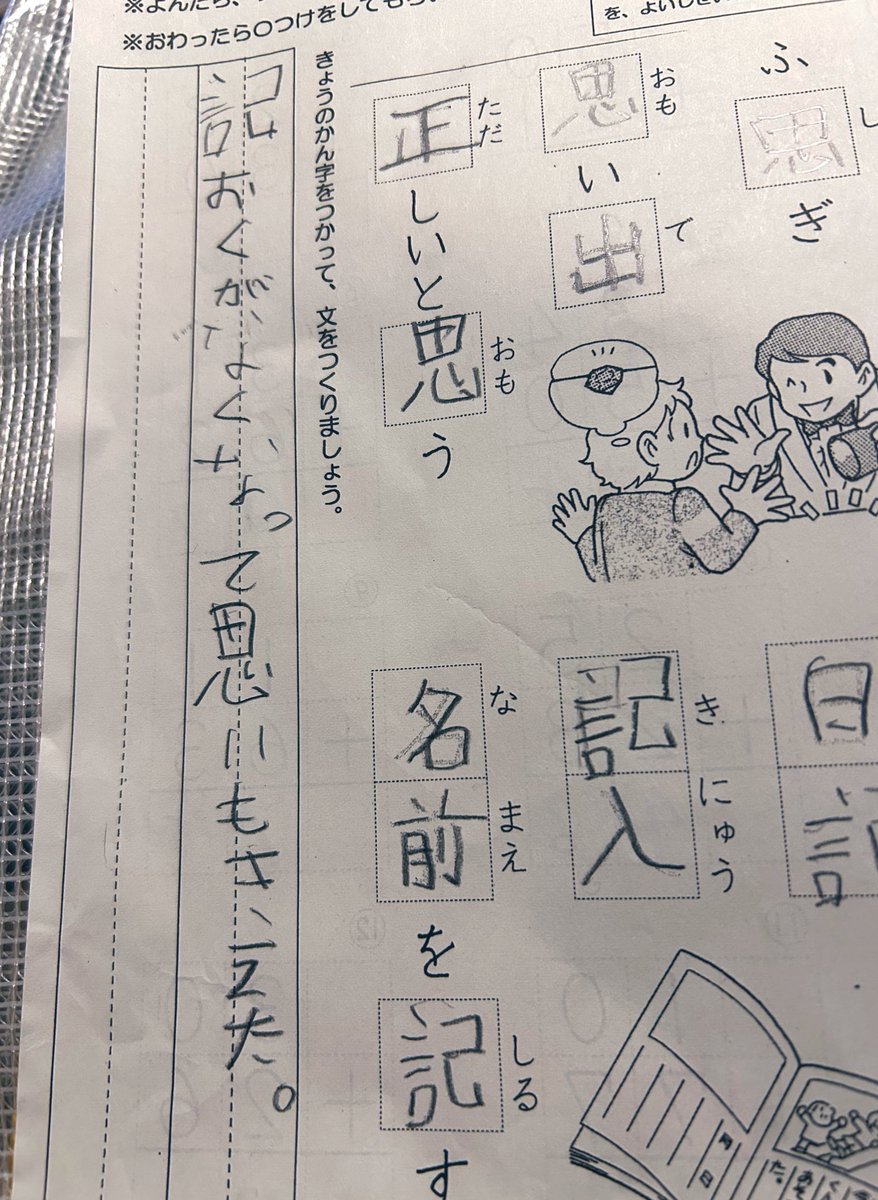 ※よんだら、
※おわったら〇つけをしてもら
を、よいしせい
し
ふ思ぎ
おも で
思い出
ただ おも
正しいと思う
日記
き にゅう
記入
な まえ しる
名前を記す
月 日
きょうのかん字をつかって、文をつくりましょう。
記おくがよくなって思いもさえた。